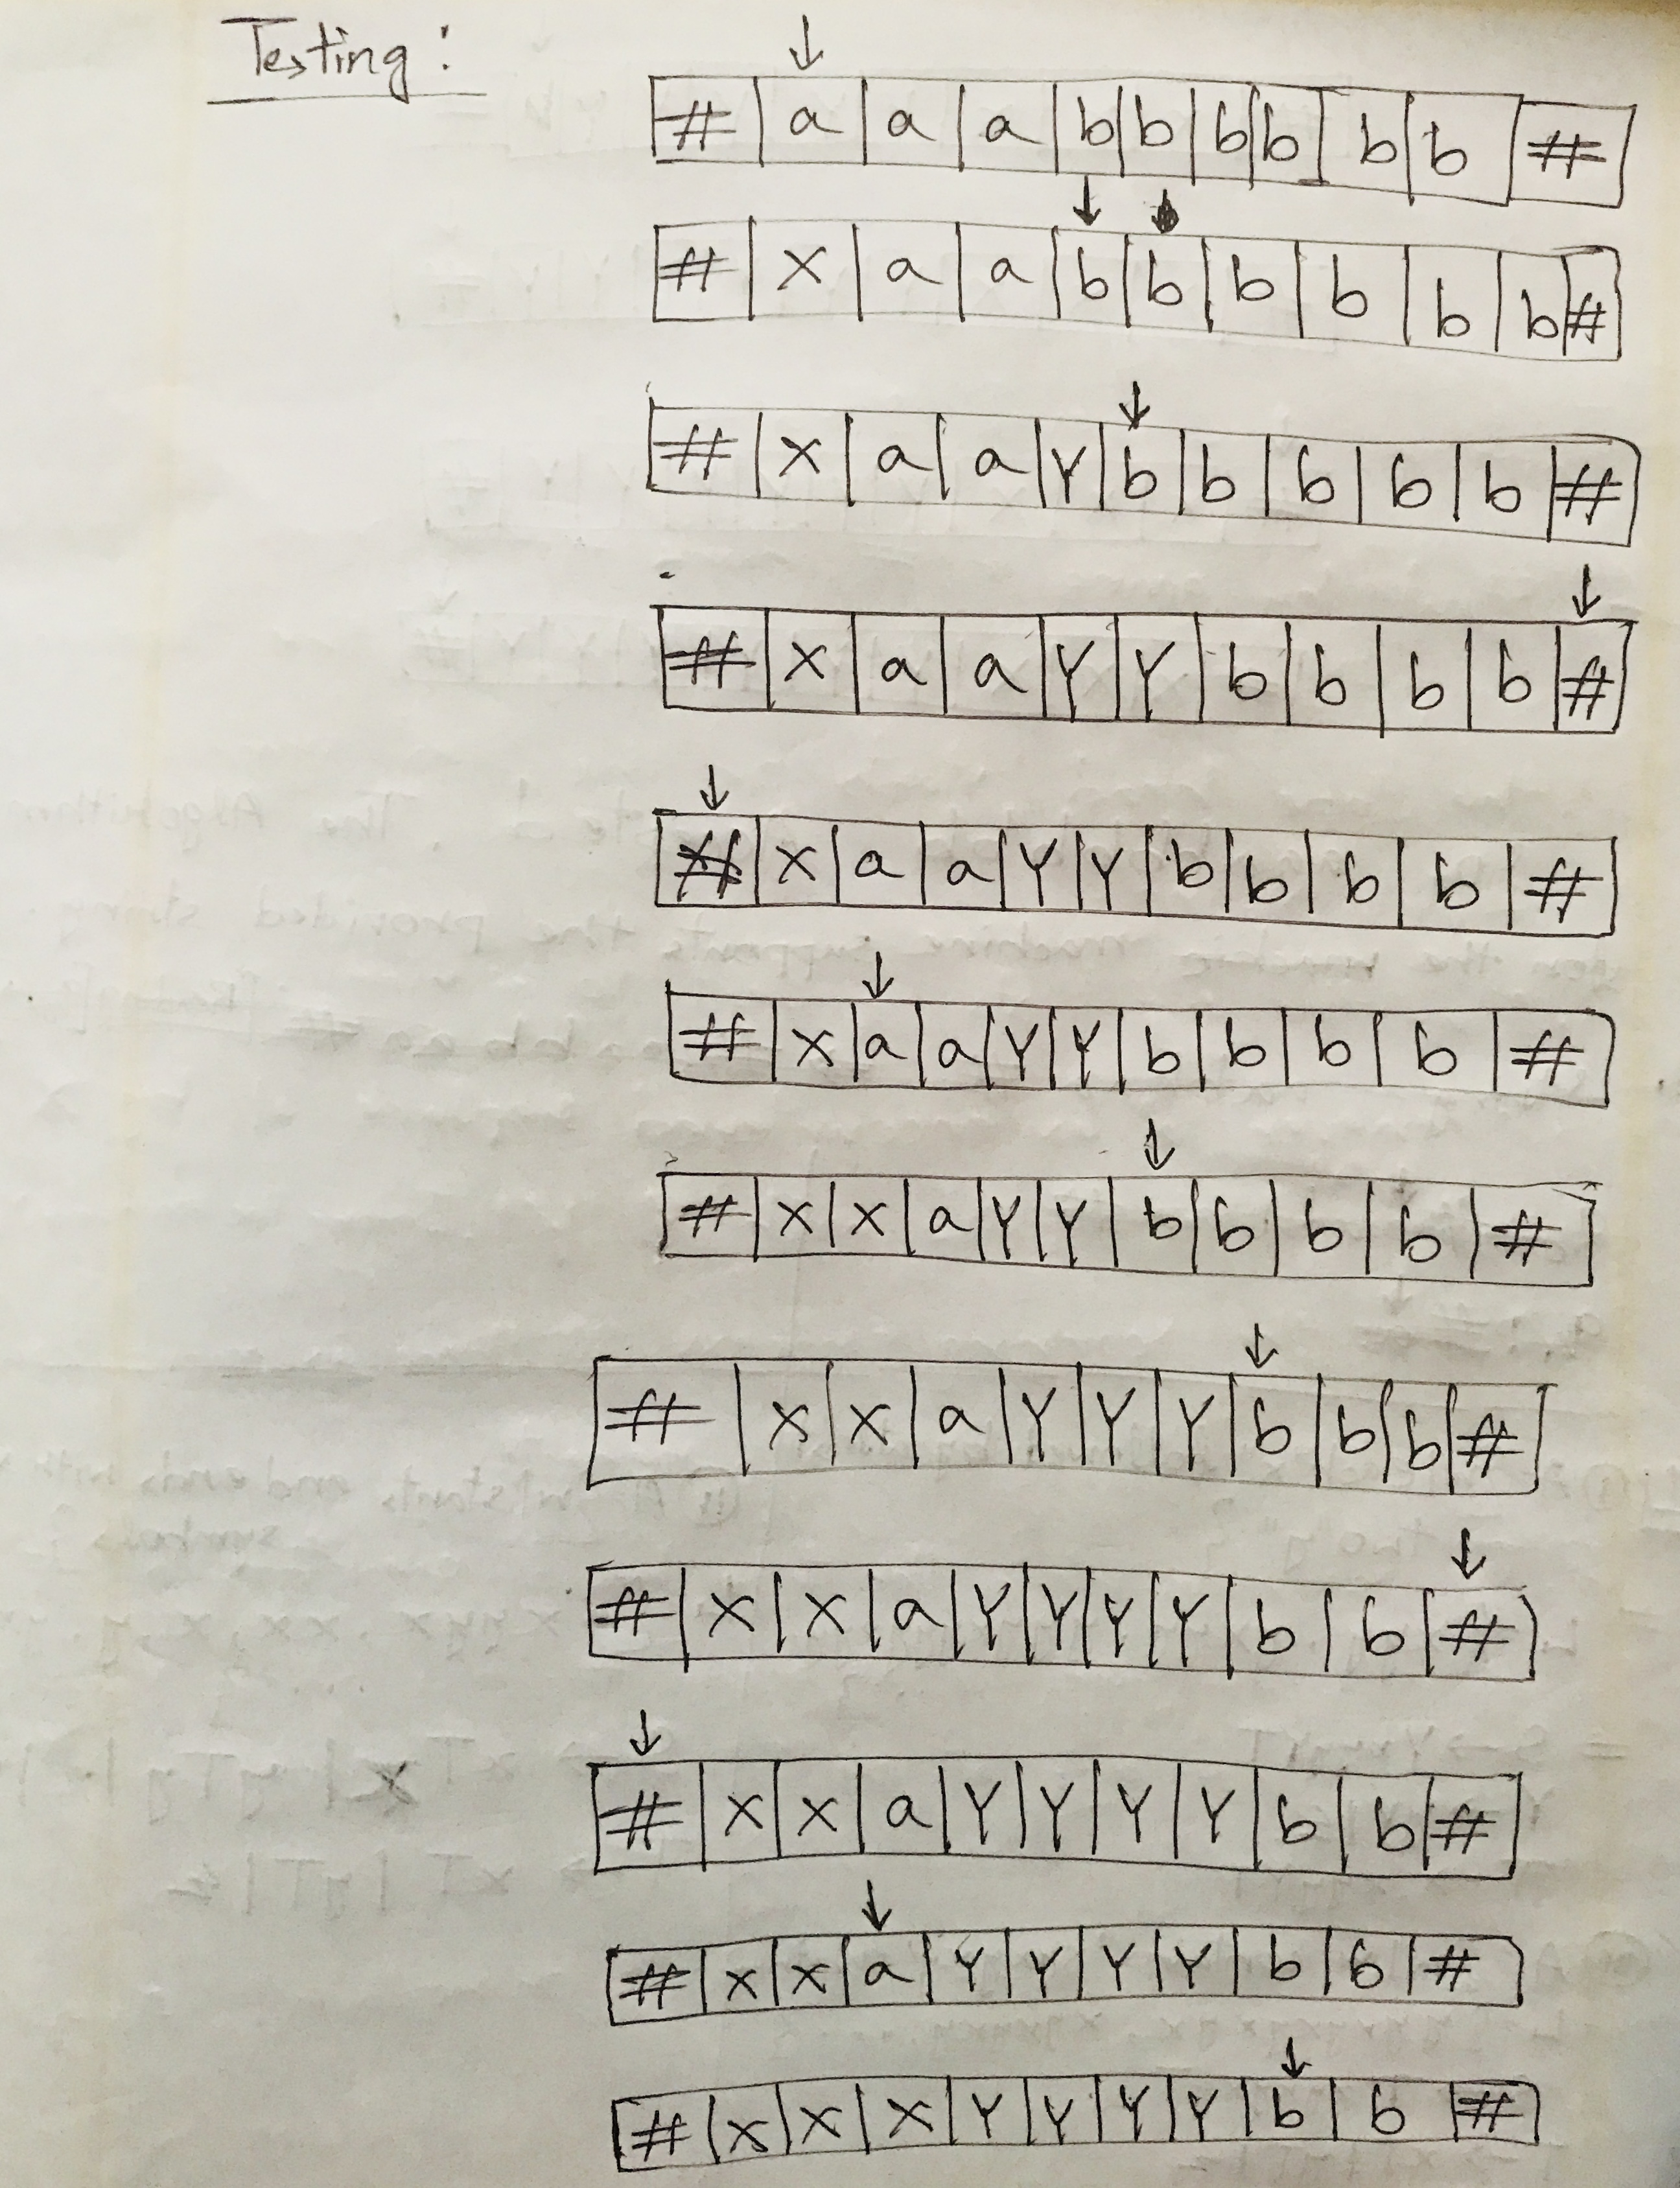 Testing :
↓
# a a a b b b b b b #
↓
# x a a b b b b b b #
↓
# x a a Y b b b b b #
↓
# x a a Y Y b b b b #
↓
# x a a Y Y b b b b #
↓
# x a a Y Y b b b b #
↓
# x x a Y Y b b b b #
↓
# x x a Y Y Y b b b #
↓
# x x a Y Y Y Y b b #
↓
# x x a Y Y Y Y b b #
↓
# x x a Y Y Y Y b b #
↓
# x x x Y Y Y Y b b #